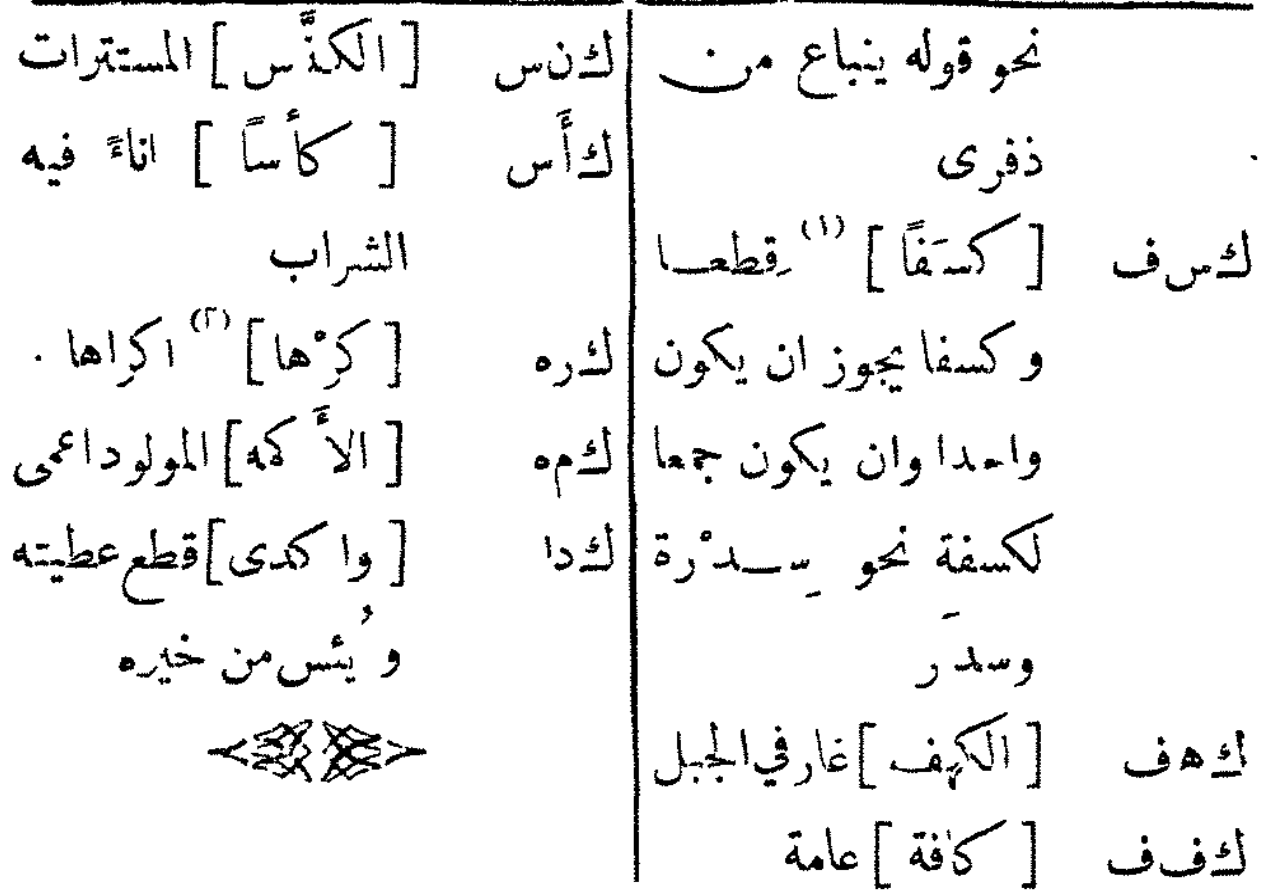 نحو قوله ينباع من
ذفرى
ك س ف [كسَفاً] (١) قِطعا
وكسفا يجوز ان يكون
واحدا وان يكون جمعا
لكسفة نحو سِدْرة
وسدَر
ك ه ف [الكهف] غار في الجبل
ك ف ف [كافة] عامة
ك ن س [الكنَّس] المستترات
ك أَ س [كأساً] اناءً فيه
الشراب
ك ر ه [كَرْها] (٢) اكراها .
ك م ه [الأَكمه] المولود اعمى
ك د ا [واكدى] قطع عطيته
ويُئس من خيره